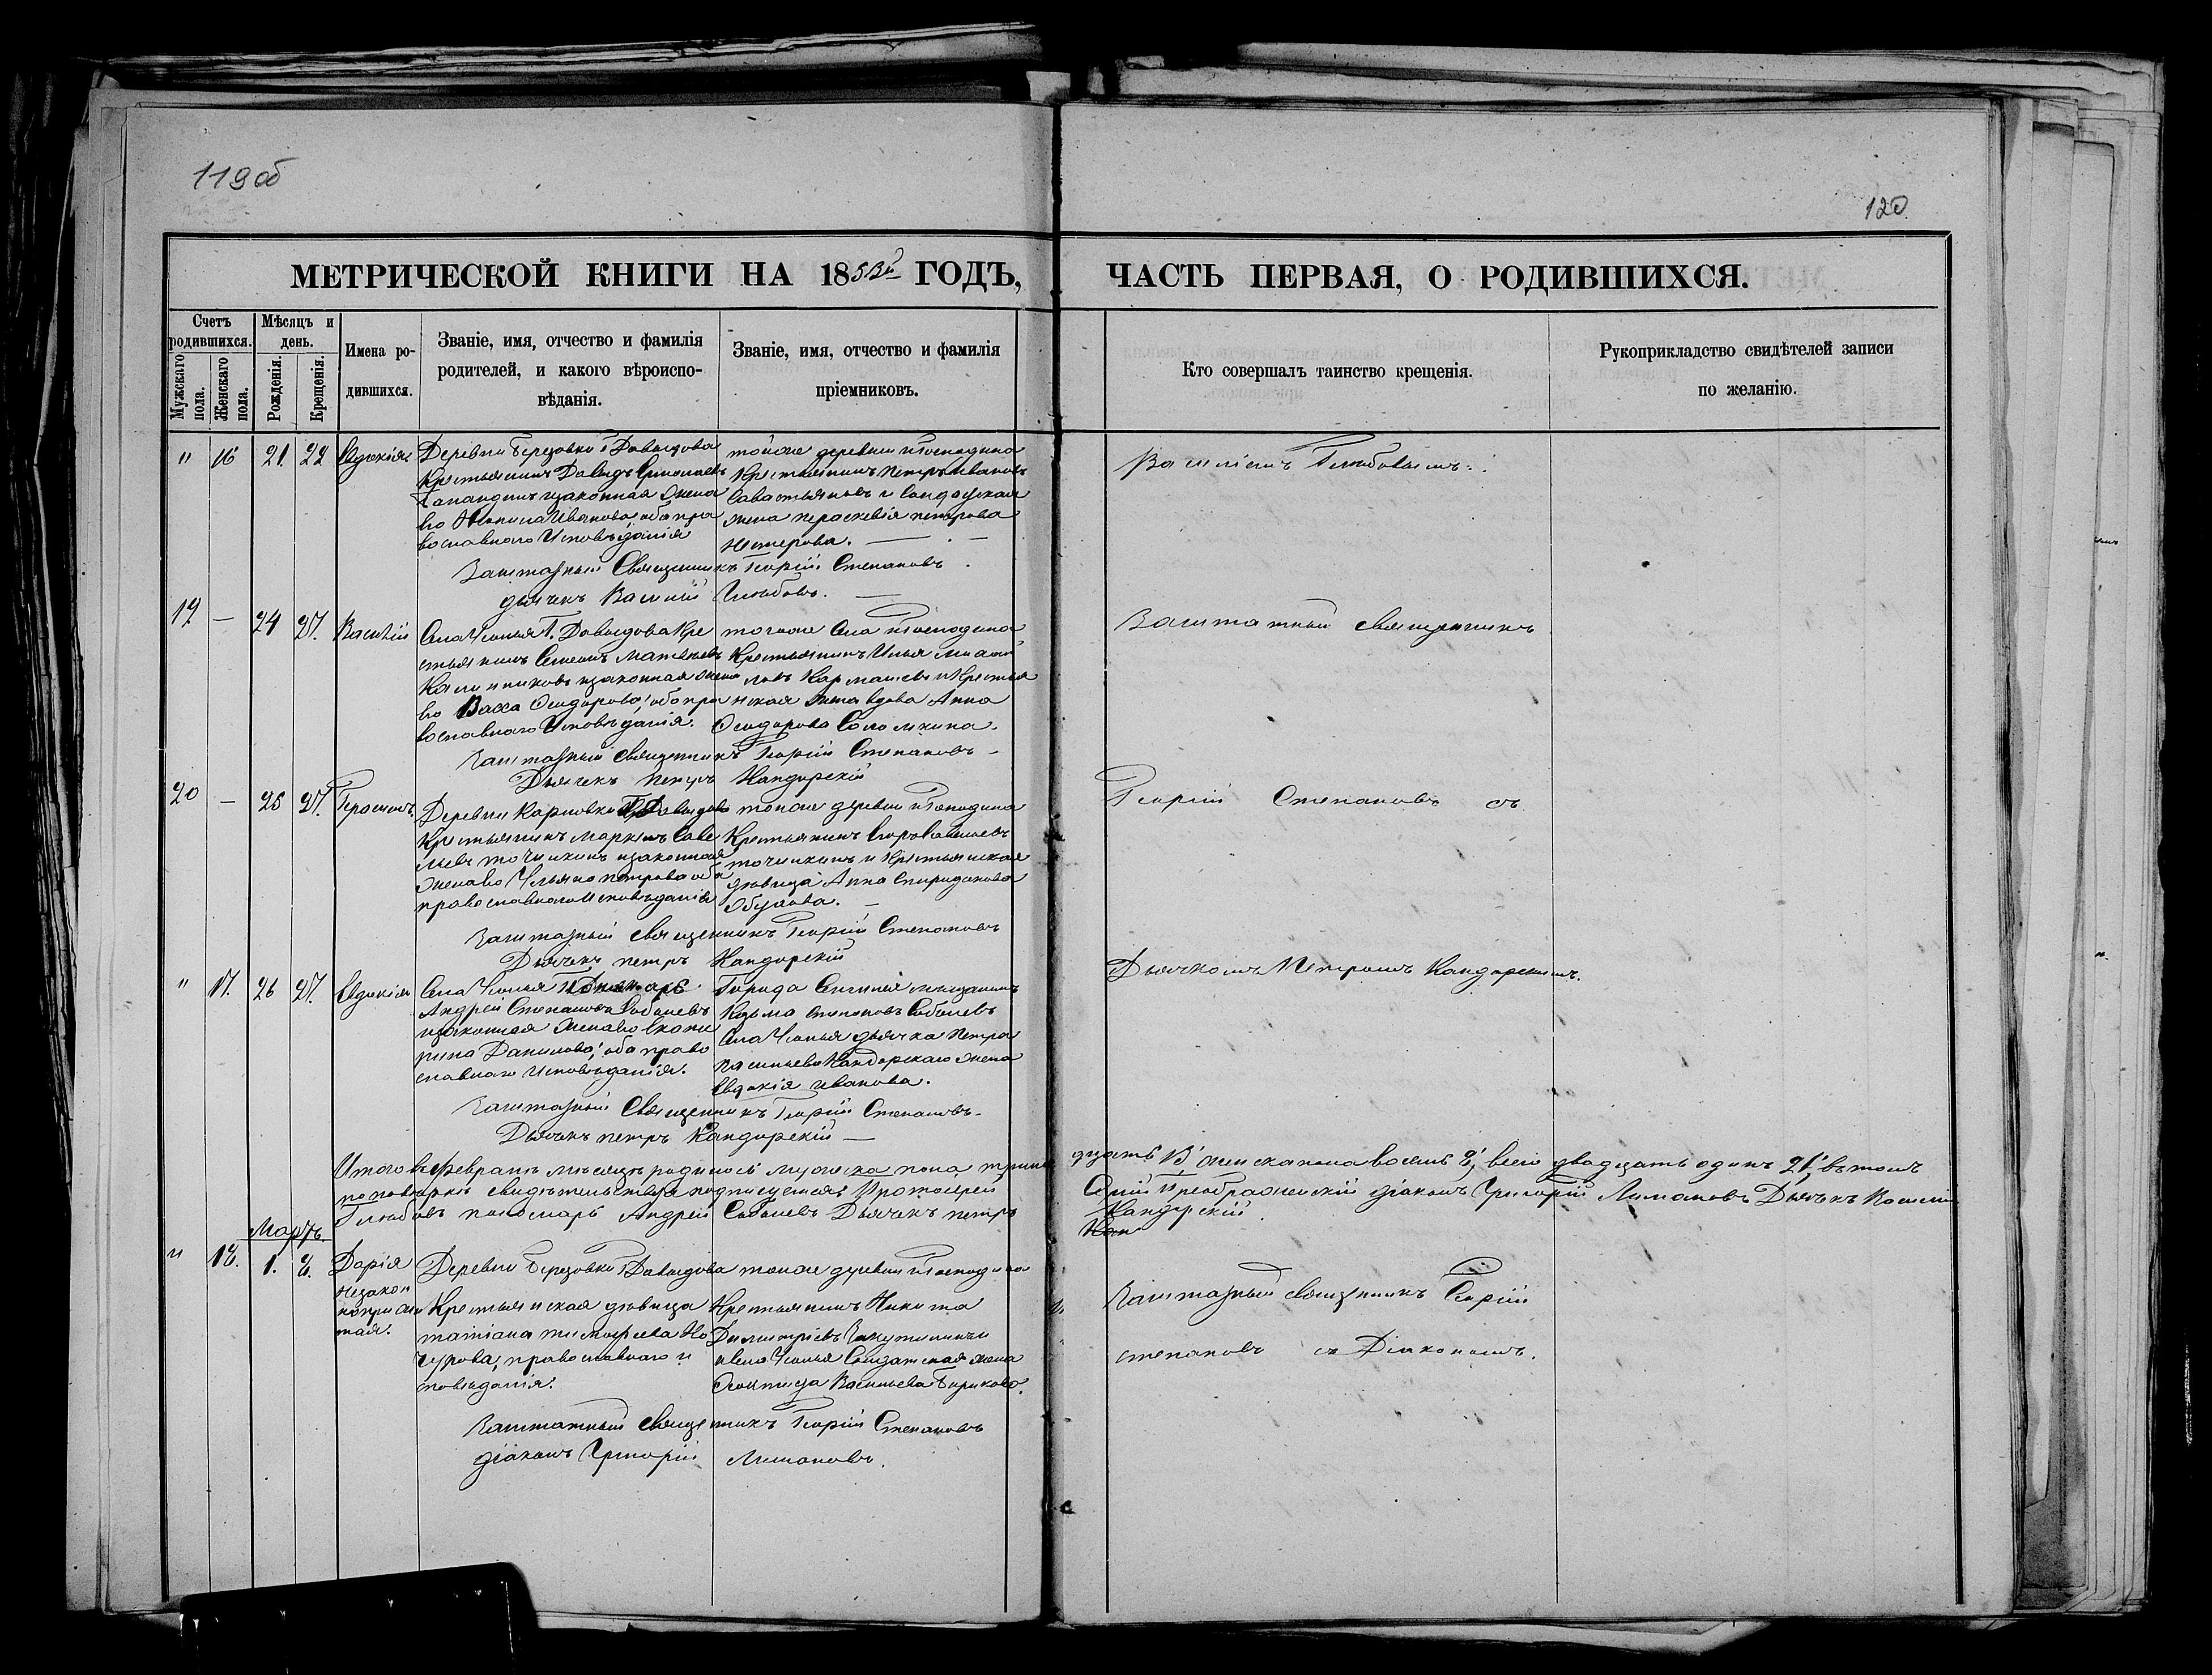 119об
120.
МЕТРИЧЕСКОЙ КНИГИ НА 1853й ГОДЪ, ЧАСТЬ ПЕРВАЯ, О РОДИВШИХСЯ.
Счетъ родившихся.
Мужскаго пола.
Женскаго пола.
Мѣсяцъ и день.
Рожденія.
Крещенія.
Имена ро-
дившихся.
Званіе, имя, отчество и фамилія
родителей, и какого вѣроиспо-
вѣданія.
Званіе, имя, отчество и фамилія
пріемниковъ.
Кто совершалъ таинство крещенія.
Рукоприкладство свидѣтелей записи
по желанію.
" 16 21. 22 Евдокія
Деревни Березовки Г Давыдова
Крестьянинъ Давидъ
законная жена
его Иванова оба пра
вославнаго Исповѣданія
тойже деревни Господина
Крестьянинъ Петръ Ивановъ
Савастьяновъ и Солдатская
жена Параскевія Петрова
Василіемъ Глѣбовымъ.
Заштатный Священникъ Георгій Степановъ.
дьячекъ Василій Глѣбовъ.
19 — 24 27. Василій
Села Г. Давыдова Кре
стьянинъ Семенъ Матвѣевъ
Калининовъ и законная жена
его Васса Ѳеодорова, оба пра
вославнаго Исповѣданія.
тогоже Села Господина
Крестьянинъ Илья
и Крестья
нская вдова Анна
Ѳеодорова Соломкина.
Заштатный священникъ
Заштатный священникъ Георгій Степановъ
Дьячекъ Петръ Кандорскій
20 — 25 27. Герасимъ.
Деревни Карповки Г Давыдова
Крестьянинъ Саве
льевъ Точилкинъ и законная
жена его Ульяна Петрова оба
православнаго Исповѣданія
тойже деревни Господина
Крестьянинъ Егоръ Савельевъ
Точилкинъ и Крестьянская
дѣвица Анна Спиридонова
Обухова.
Георгій Степановъ съ
Заштатный священникъ Георгій Степановъ
Дьячекъ Петръ Кандорскій
" 17. 26 27. Евдокія
Села Пономарь
Андрей Степановъ Соболевъ
и законная жена его Екате
рина Данилова, оба право
славнаго Исповѣданія.
Города мещанинъ
Козьма Степановъ Соболевъ
Села дьячка Петра
Васильева Кандорскаго жена
Евдокія Иванова.
Дьячкомъ Петромъ Кандорскимъ.
Заштатный Священникъ Георгій Степановъ.
Дьячекъ Петръ Кандорскій —
Итого въ февралѣ мѣсяцѣ родилось мужеска пола трина дцать 13, женска пола восемь 8, всего двадцать одинъ 21, въ томъ
по повѣркѣ свидѣтельства подписуемся: Протоіерей Преображенскій діаконъ Григорій Лимановъ Дьячекъ Василій
Глѣбовъ пономарь Андрей Соболевъ Дьячекъ Петръ Кандорскій.
Мартъ.
" 18. 1. 8. Дарія
незакон
норожден
ная.
Деревни Березовки Г Давыдова
Крестьянская дѣвица
Татіана Тимофеева Но
чурова, православнаго и
сповѣданія.
тойже деревни Господина
Крестьянинъ Никита
Димитріевъ
и Села Солдатская жена
Васильева Бирюкова.
Заштатный священникъ Георгій
Степановъ съ Діакономъ.
Заштатный Священникъ Георгій Степановъ
діаконъ Григорій Лимановъ.